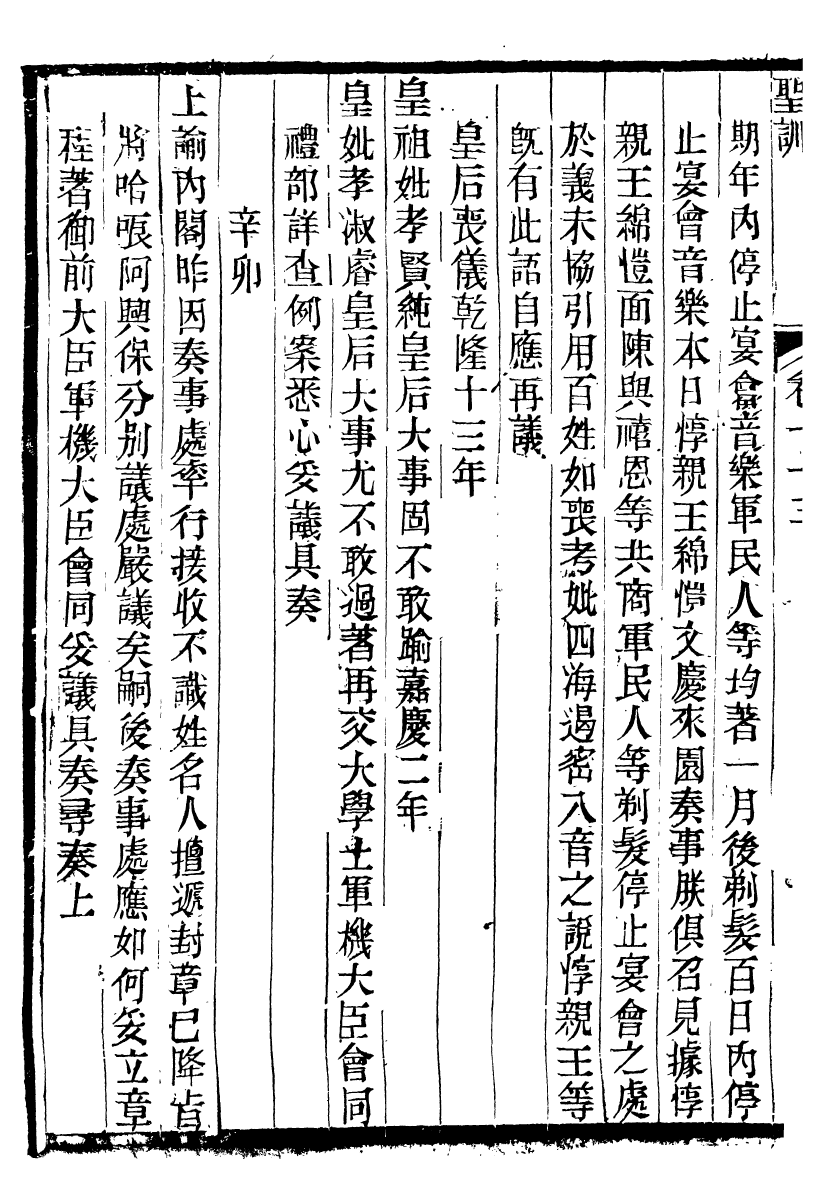 聖訓
卷一十三
期年內停止宴會音樂軍民人等均著一月後剃髮百日內停
止宴會音樂本日惇親王綿愷文慶來園奏事朕俱召見據惇
親王綿愷面陳與禧恩等共商軍民人等剃髮停止宴會之處
於義未協引用百姓如喪考妣四海遏密八音之說惇親王等
旣有此語自應再議
皇后喪儀乾隆十三年
皇祖妣孝賢純皇后大事固不敢踰嘉慶二年
皇妣孝淑睿皇后大事尤不敢過著再交大學士軍機大臣會同
禮部詳查例案悉心妥議具奏
辛卯
上諭內閣昨因奏事處率行接收不識姓名人擅遞封章已降旨
將哈哴阿興保分別議處嚴議矣嗣後奏事處應如何妥立章
程著御前大臣軍機大臣會同妥議具奏尋奏上